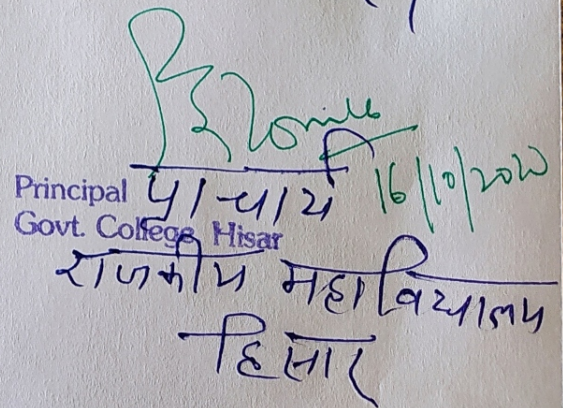 16/10/2020
Principal प्राचार्य
Govt. College, Hisar
राजकीय महाविद्यालय
हिसार